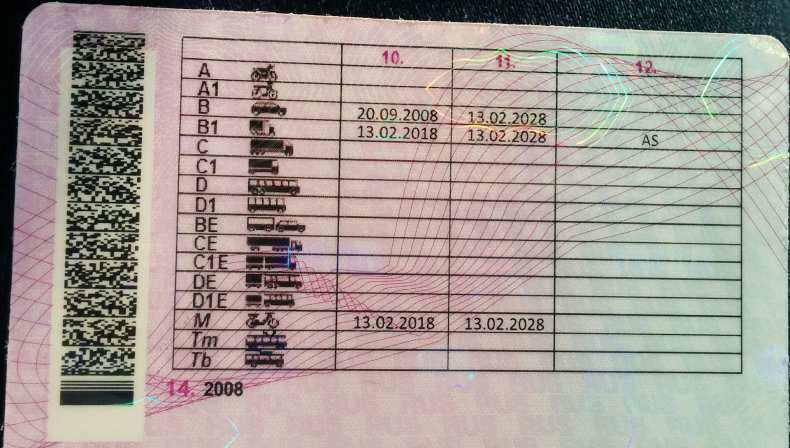 10. 11. 12.
A
A1
B 20.09.2008 13.02.2028
B1 13.02.2018 13.02.2028 AS
C
C1
D
D1
BE
CE
C1E
DE
D1E
M 13.02.2018 13.02.2028
Tm
Tb
14. 2008